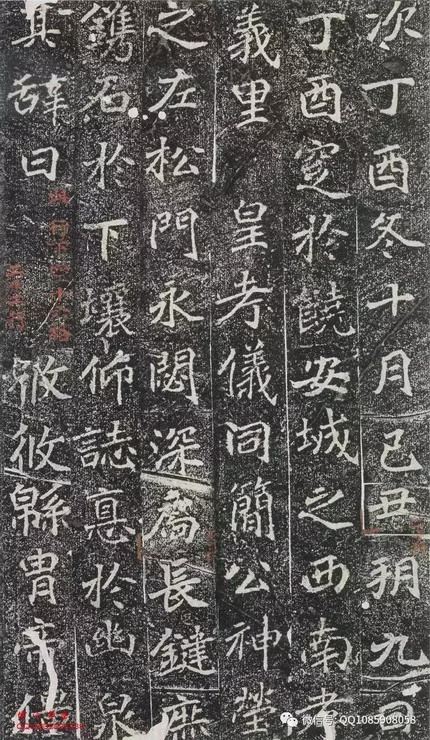 次丁酉冬十月己丑朔九日
丁酉窆於饒安城之西南孝
義里 皇考儀同簡公神塋
之左松門永閟深扃長鍵庶
鐫石於下壤仰誌悳於幽泉
其辭曰 攸攸緜胄帝
微信号: QQ1085908058